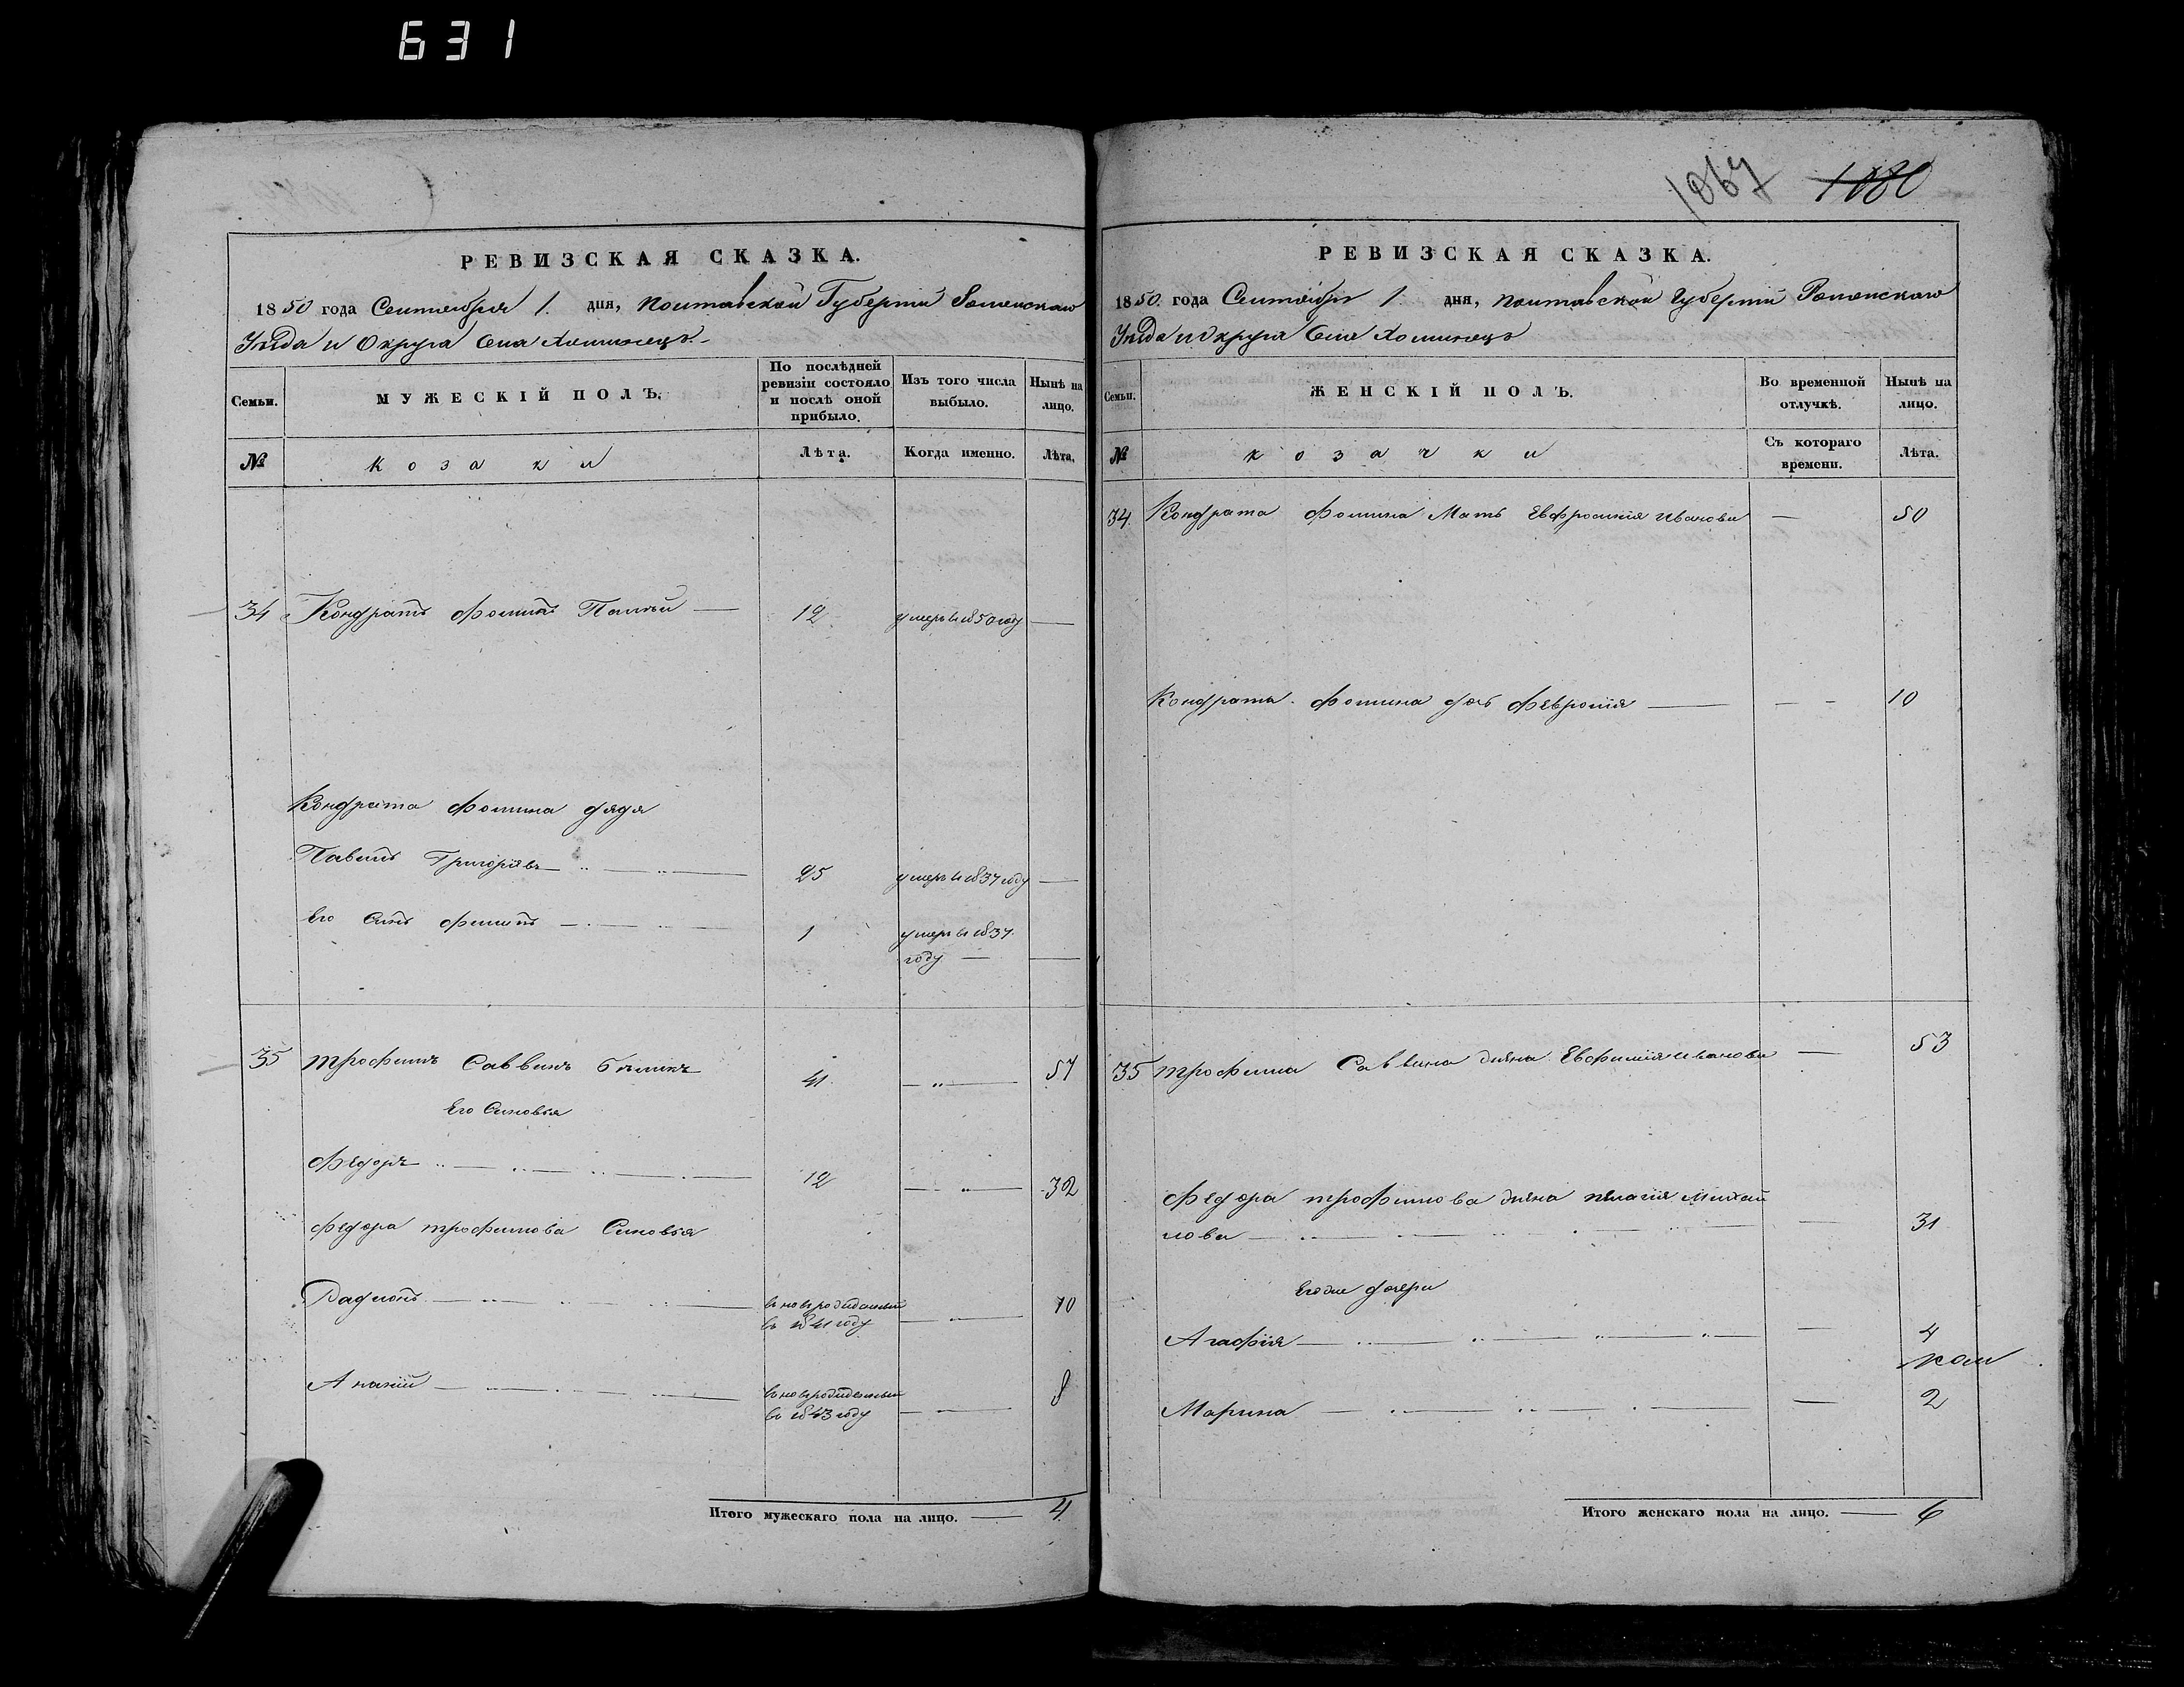 631
1067 1080
РЕВИЗСКАЯ СКАЗКА.
1850 года Сентября 1. дня, Полтавской Губерніи Роменскаго
Уѣзда и Округа Села Хоминецъ
Семьи.
МУЖЕСКІЙ ПОЛЪ.
По послѣдней ревизіи состояло и послѣ оной прибыло.
Изъ того числа выбыло.
Нынѣ на лицо.
№
козаки
Лѣта.
Когда именно.
Лѣта.
34 Кондратъ Фоминъ 12 умеръ въ 1850 году
Кондрата Фомина дядя
Павелъ Григоріевъ 25 умеръ въ 1837 году
Его Сынъ Филипъ 1 умеръ въ 1837
году
35 Трофимъ Саввинъ 41 57
Его Сыновья
Федоръ 12 32
Федора Трофимова Сыновья
Радіонъ вновьрожденный 10
въ 1841 году
Ананій вновьрожденный 8
въ 1843 году
Итого мужескаго пола на лицо. 4
РЕВИЗСКАЯ СКАЗКА.
1850. года Сентября 1. дня, Полтавской Губерніи Роменскаго
Уѣзда и Округа Села Хоминецъ
Семьи.
ЖЕНСКІЙ ПОЛЪ.
Во временной отлучкѣ.
Нынѣ на лицо.
№
козачки
Съ котораго времени.
Лѣта.
34. Кондрата Фомина Мать Евфросинія Иванова 50
Кондрата Фомина дочь Февронія 10
35 Трофима Саввина жена Евфимія Иванова 53
Федора Трофимова жена Пелагія Михай
лова 31
Егоже дочери
Агафія 4
Марина 2
Итого женскаго пола на лицо. 6